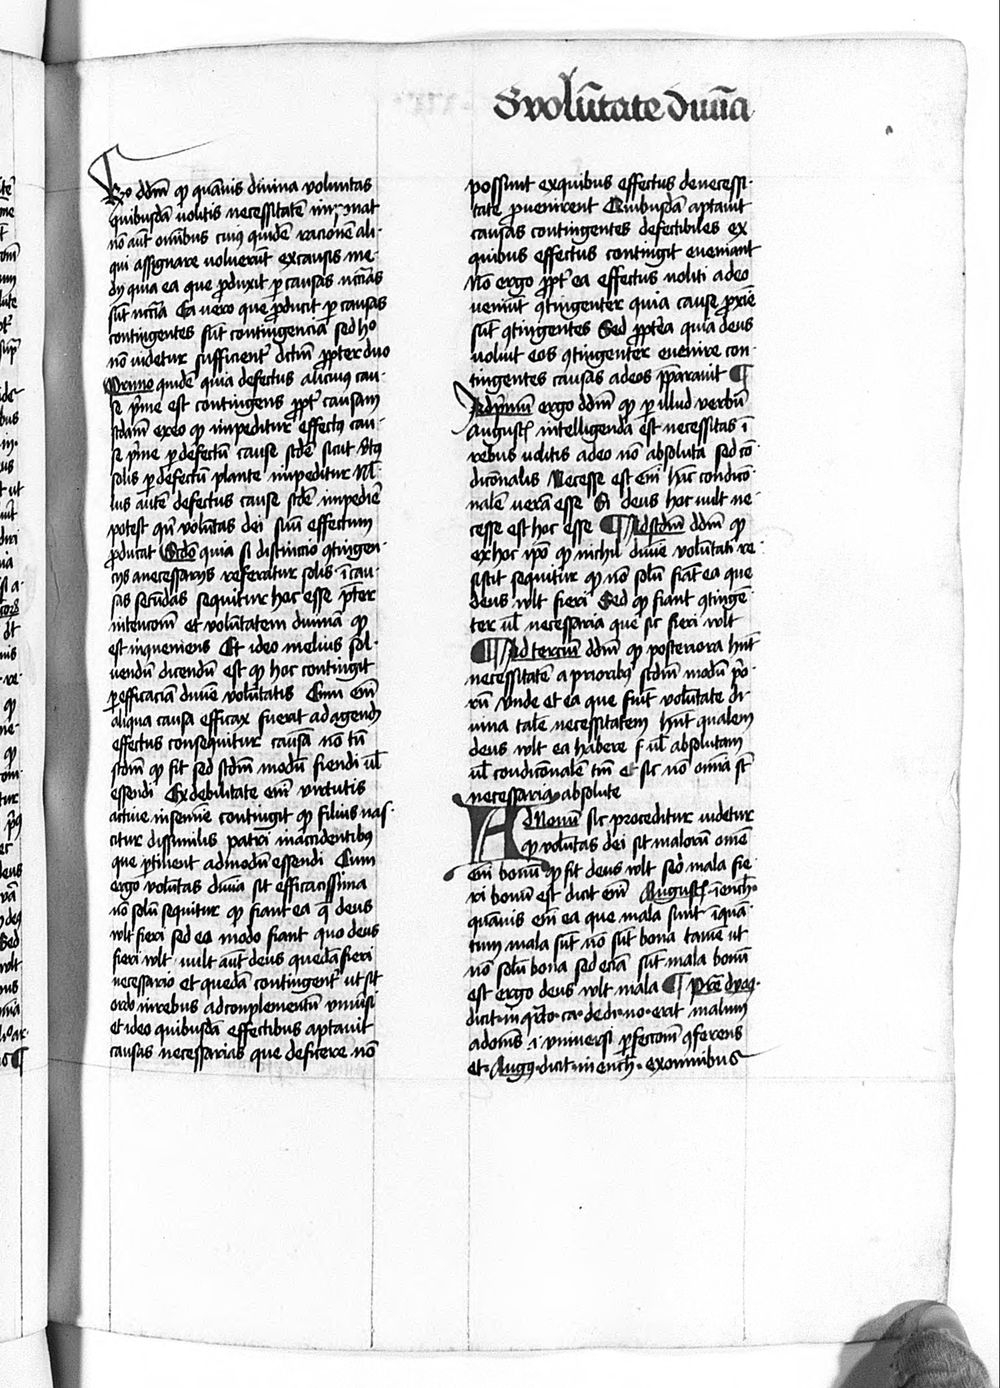 S volūtate diuīa
Rº ddm̄ qꝫ quāuis diuina voluntas
quibusdā uolitis necessitatē imponat
nō aūt om̄ibus cuiꝰ quidē racionē ali-
qui assignare uoluerūt ex causis me-
dijs quia ea que ꝓduxit ꝑ causas nccīas
sūt nccīa Ea vero que ꝓducit ꝑ causas
contingentes sūt contingencia sed hº
nō uidetur sufficient' dictm̄ ꝓpter duo
Primo quidē quia defectus alicuiꝰ cau-
se ꝑme est contingens ꝓpt' causam
scdam ex eo qꝫ impeditur effectꝰ cau-
se ꝑme ꝑ defectū cause scde sicut vtꝰ
solis ꝑ defectū plante impeditur Nl-
lus autē defectus cause scde impedire
potest qn̄ volūtas dei suū effectum
ꝓducat Scdo quia si distinctio ꝯtingen-
cijs a necessarijs referatur solis ī cau-
sas secūdas sequitur hoc esse p̄ter
intencōm et volūtatem diuinā qꝫ
est inqueniens Et ideo melius sol-
uendū dicendū est qꝫ hoc contingit
ꝑ efficaciā diuine volūtatis Cum em̄
aliqua causa efficax fuerit ad agendū
effectus consequitur causā nō tm̄
scdm̄ qꝫ fit sed scdm̄ modū fiendi ul̄
essendi Ex debilitate em̄ virtutis
actiue in semīe contingit qꝫ filius nas-
citur dissimilis patri in accidentibꝰ
que ꝑtinent ad modū essendi Cum
ergo volūtas diuīa sit efficacissima
nō solū sequitur qꝫ fiant ea q̄ deus
vlt fieri sed eo modo fiant quo deus
fieri vlt uult aūt deus quedā fieri
necessario et quedā contingent' ut sit
ordo in rebus ad complementū vniūsi
et ideo quibusdā effectibus aptauit
causas necessarias que deficere nō
possunt ex quibus effectus de necessi-
tate ꝓuenirent Quibusdā aptauit
causas contingentes defectibiles ex
quibus effectus contingit eueniant
Nō ergo ꝓpt' ea effectus uoliti a deo
ueniūt ꝯtingenter quia cause ꝓxīe
sūt ꝯtingentes Sed ꝓpt'ea quia deus
uoluit eos ꝯtingenter euenire con-
tingentes causas ad eos p̄parauit ¶
Ad pmū ergo ddm̄ qꝫ ꝑ illud verbū
Augustī intelligenda est necessitas ī
rebus uolitis a deo nō absoluta sed cō-
dicōnalis Necesse est em̄ hāc condicō-
nalē verā esse Si deus hoc vult ne-
cesse est hoc esse ¶ Ad scdm̄ ddm̄ qꝫ
ex hoc ipō qꝫ nichil diuīe volūtati re-
sistit sequitur qꝫ nō solū fiāt ea que
deus vlt fieri Sed qꝫ fiant ꝯtingē-
ter ul̄ necessaria que sic fieri vlt
¶ Ad tercīū ddm̄ qꝫ posteriora hn̄t
necessitatē a prioribꝰ scdm̄ modū p̄o-
rū Vnde et ea que fiūt volūtate di-
uina talē necessitatem hn̄t qualem
deus vlt ea habere s ul̄ absolutam
ul̄ condicōnalē tm̄ et sic nō omīa st̄
necessaria absolute
Ad Nonū sic proceditur uidetur
qꝫ volūtas dei sit malorū om̄e
em̄ bonū qꝫ fit deus vlt sed mala fie-
ri bonū est dicit em̄ Augustī ī ench'
quāuis em̄ ea que mala sunt īquā-
tum mala sūt nō sūt bona tamē ut
nō solū bona sed eciā sūt mala bonū
est ergo deus vlt mala ¶ Prē dyoꝫ
dicit in qrto ca de di no erit malum
ad om̄s i vniuersi ꝑfectōm ꝯferens
et Augꝰ dicit in ench ex omnibus